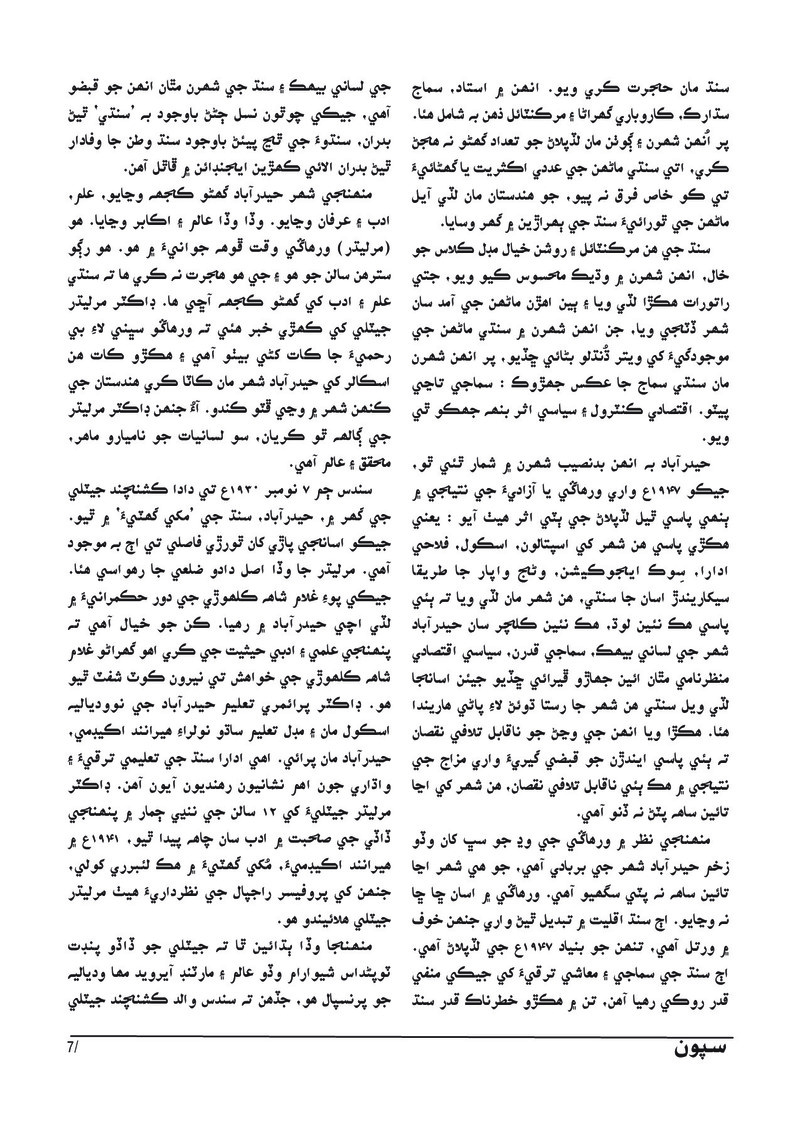 سنڌ مان هجرت ڪري ويو. انهن ۾ استاد، سماج
سڌارڪ، ڪاروباري گهراڻا ۽ مرڪنٽائل ذهن به شامل هئا.
پر اُنهن شهرن ۽ ڳوٺن مان لڏپلاڻ جو تعداد گهڻو نه هجڻ
ڪري، اتي سنڌي ماڻهن جي عددي اڪثريت يا گهٽائيءَ
تي ڪو خاص فرق نه پيو، جو هندستان مان لڏي آيل
ماڻهن جي ٿورائيءَ سنڌ جي ٻهراڙين ۾ گهر وسايا.
سنڌ جي هن مرڪنٽائل ۽ روشن خيال مڊل ڪلاس جو
خال، انهن شهرن ۾ وڌيڪ محسوس ڪيو ويو، جتي
راتورات هڪڙا لڏي ويا ۽ ٻين اهڙن ماڻهن جي آمد سان
شهر ڏٽجي ويا، جن انهن شهرن ۾ سنڌي ماڻهن جي
موجودگيءَ کي ويتر ڌُنڌلو بڻائي ڇڏيو، پر انهن شهرن
مان سنڌي سماج جا عڪس جهڙوڪ : سماجي تاڃي
پيٽو. اقتصادي ڪنٽرول ۽ سياسي اثر بنهه جهڪو ٿي
ويو.
حيدرآباد به انهن بدنصيب شهرن ۾ شمار ٿئي ٿو،
جيڪو ۱۹۴۷ع واري ورهاڱي يا آزاديءَ جي نتيجي ۾
ٻنهي پاسي ٿيل لڏپلاڻ جي ٻٽي اثر هيٺ آيو : يعني
هڪڙي پاسي هن شهر کي اسپتالون، اسڪول، فلاحي
ادارا، سِوڪ ايجوڪيشن، وڻج واپار جا طريقا
سيکاريندڙ اسان جا سنڌي، هن شهر مان لڏي ويا ته ٻئي
پاسي هڪ نئين لوڏ، هڪ نئين ڪلچر سان حيدرآباد
شهر جي لساني بيهڪ، سماجي قدرن، سياسي اقتصادي
منظرنامي مٿان ائين جهاڙو ڦيرائي ڇڏيو جيئن اسانجا
لڏي ويل سنڌي هن شهر جا رستا ڌوئڻ لاءِ پاڻي هاريندا
هئا. هڪڙا ويا انهن جي وڃڻ جو ناقابل تلافي نقصان
ته ٻئي پاسي ايندڙن جو قبضي گيريءَ واري مزاج جي
نتيجي ۾ هڪ ٻئي ناقابل تلافي نقصان، هن شهر کي اڃا
تائين ساهه پٽڻ نه ڏنو آهي.
منهنجي نظر ۾ ورهاڱي جي وڍ جو سڀ کان وڏو
زخم حيدرآباد شهر جي بربادي آهي، جو هي شهر اڃا
تائين ساهه نه پٽي سگهيو آهي. ورهاڱي ۾ اسان ڇا ڇا
نه وڃايو. اڄ سنڌ اقليت ۾ تبديل ٿيڻ واري جنهن خوف
۾ ورتل آهي، تنهن جو بنياد ۱۹۴۷ع جي لڏپلاڻ آهي.
اڄ سنڌ جي سماجي ۽ معاشي ترقيءَ کي جيڪي منفي
قدر روڪي رهيا آهن، تن ۾ هڪڙو خطرناڪ قدر سنڌ
جي لساني بيهڪ ۽ سنڌ جي شهرن مٿان انهن جو قبضو
آهي، جيڪي چوٿون نسل ڄڻڻ باوجود به 'سنڌي' ٿيڻ
بدران، سنڌوءَ جي ٿڃ پيئڻ باوجود سنڌ وطن جا وفادار
ٿيڻ بدران الائي ڪهڙين ايجنڊائن ۾ ڦاٿل آهن.
منهنجي شهر حيدرآباد گهڻو ڪجهه وڃايو، علم،
ادب ۽ عرفان وڃايو. وڏا وڏا عالم ۽ اڪابر وڃايا. هو
(مرليڌر) ورهاڱي وقت ڦوهه جوانيءَ ۾ هو. هو رڳو
سترهن سالن جو هو ۽ جي هو هجرت نه ڪري ها ته سنڌي
علم ۽ ادب کي گهڻو ڪجهه آڇي ها. ڊاڪٽر مرليڌر
جيٽلي کي ڪهڙي خبر هئي ته ورهاڱو سڀني لاءِ بي
رحميءَ جا ڪات کڻي بيٺو آهي ۽ هڪڙو ڪات هن
اسڪالر کي حيدرآباد شهر مان ڪاٽا ڪري هندستان جي
ڪنهن شهر ۾ وڃي ڦٽو ڪندو. آءٌ جنهن ڊاڪٽر مرليڌر
جي ڳالهه ٿو ڪريان، سو لسانيات جو ناميارو ماهر،
محقق ۽ عالم آهي.
سندس جنم ۷ نومبر ۱۹۳۰ع تي دادا ڪشنچند جيٽلي
جي گهر ۾، حيدرآباد، سنڌ جي 'مکي گهٽيءَ' ۾ ٿيو.
جيڪو اسانجي پاڙي کان ٿورڙي فاصلي تي اڄ به موجود
آهي. مرليڌر جا وڏا اصل دادو ضلعي جا رهواسي هئا.
جيڪي پوءِ غلام شاهه ڪلهوڙي جي دور حڪمرانيءَ ۾
لڏي اچي حيدرآباد ۾ رهيا. ڪن جو خيال آهي ته
پنهنجي علمي ۽ ادبي حيثيت جي ڪري اهو گهراڻو غلام
شاهه ڪلهوڙي جي خواهش تي نيرون ڪوٽ شفٽ ٿيو
هو. ڊاڪٽر پرائمري تعليم حيدرآباد جي نوودياليه
اسڪول مان ۽ مڊل تعليم ساڌو نولراءِ هيرانند اڪيڊمي،
حيدرآباد مان پرائي. اهي ادارا سنڌ جي تعليمي ترقيءَ ۽
واڌاري جون اهم نشانيون رهنديون آيون آهن. ڊاڪٽر
مرليڌر جيٽليءَ کي ۱۲ سالن جي ننڍي ڄمار ۾ پنهنجي
ڏاڏي جي صحبت ۾ ادب سان چاهه پيدا ٿيو، ۱۹۴۱ع ۾
هيرانند اڪيڊميءَ، مُکي گهٽيءَ ۾ هڪ لئبرري کولي،
جنهن کي پروفيسر راجپال جي نظرداريءَ هيٺ مرليڌر
جيٽلي هلائيندو هو.
منهنجا وڏا ٻڌائين ٿا ته جيٽلي جو ڏاڏو پنڊت
ٽوپڻداس شيوارام وڏو عالم ۽ مارٽنڊ آيرويد مها ودياليه
جو پرنسپال هو، جڏهن ته سندس والد ڪشنچند جيٽلي
سپون
7/